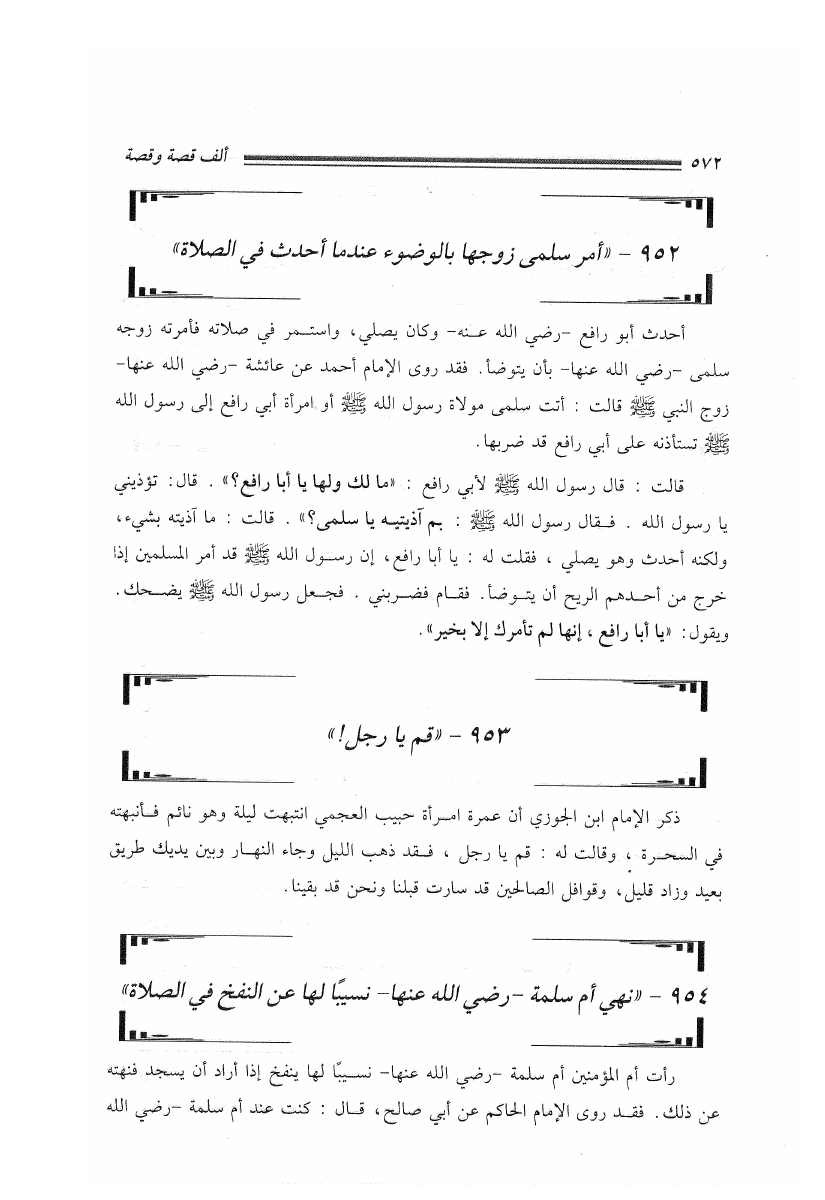 ٥٧٢ ألف قصة وقصة
٩٥٢ - «أمر سلمى زوجها بالوضوء عندما أحدث في الصلاة»
أحدث أبو رافع -رضي الله عنه- وكان يصلي، واستمر في صلاته فأمرته زوجه
سلمى -رضي الله عنها- بأن يتوضأ. فقد روى الإمام أحمد عن عائشة -رضي الله عنها-
زوج النبي ﷺ قالت : أتت سلمى مولاة رسول الله ﷺ أو امرأة أبي رافع إلى رسول الله
ﷺ تستأذنه على أبي رافع قد ضربها.
قالت : قال رسول الله ﷺ لأبي رافع : «ما لك ولها يا أبا رافع؟» . قال: تؤذيني
يا رسول الله . فقال رسول الله ﷺ : بم آذيتيه يا سلمى؟» . قالت : ما آذيته بشيء،
ولكنه أحدث وهو يصلي ، فقلت له : يا أبا رافع، إن رسول الله ﷺ قد أمر المسلمين إذا
خرج من أحدهم الريح أن يتوضأ. فقام فضربني . فجعل رسول الله ﷺ يضحك.
ويقول: «يا أبا رافع ، إنها لم تأمرك إلا بخير».
٩٥٣ - «قم يا رجل!»
ذكر الإمام ابن الجوزي أن عمرة امرأة حبيب العجمي انتبهت ليلة وهو نائم فأنبهته
في السحرة ، وقالت له : قم يا رجل ، فقد ذهب الليل وجاء النهار وبين يديك طريق
بعيد وزاد قليل، وقوافل الصالحين قد سارت قبلنا ونحن قد بقينا.
٩٥٤ - «نهي أم سلمة -رضي الله عنها- نسيبًا لها عن النفخ في الصلاة»
رأت أم المؤمنين أم سلمة -رضي الله عنها- نسيبًا لها ينفخ إذا أراد أن يسجد فنهته
عن ذلك. فقد روى الإمام الحاكم عن أبي صالح، قال : كنت عند أم سلمة -رضي الله